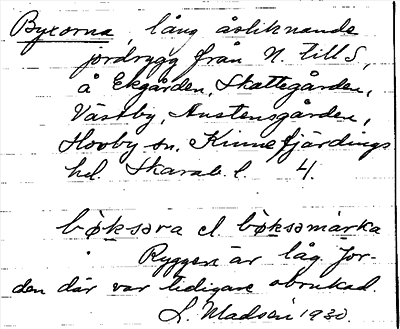 Byxorna, lång åsliknande
jordrygg från N. till S,
å Ekgården, Skattegården,
Västby, Austensgården,
Hovby sn. Kinnefjärdings
hd. Skarab. l. 4.
bøksǝra el. bøksǝmarka
Ryggen är låg. Jor-
den där var tidigare obrukad.
L. Madsén 1930.